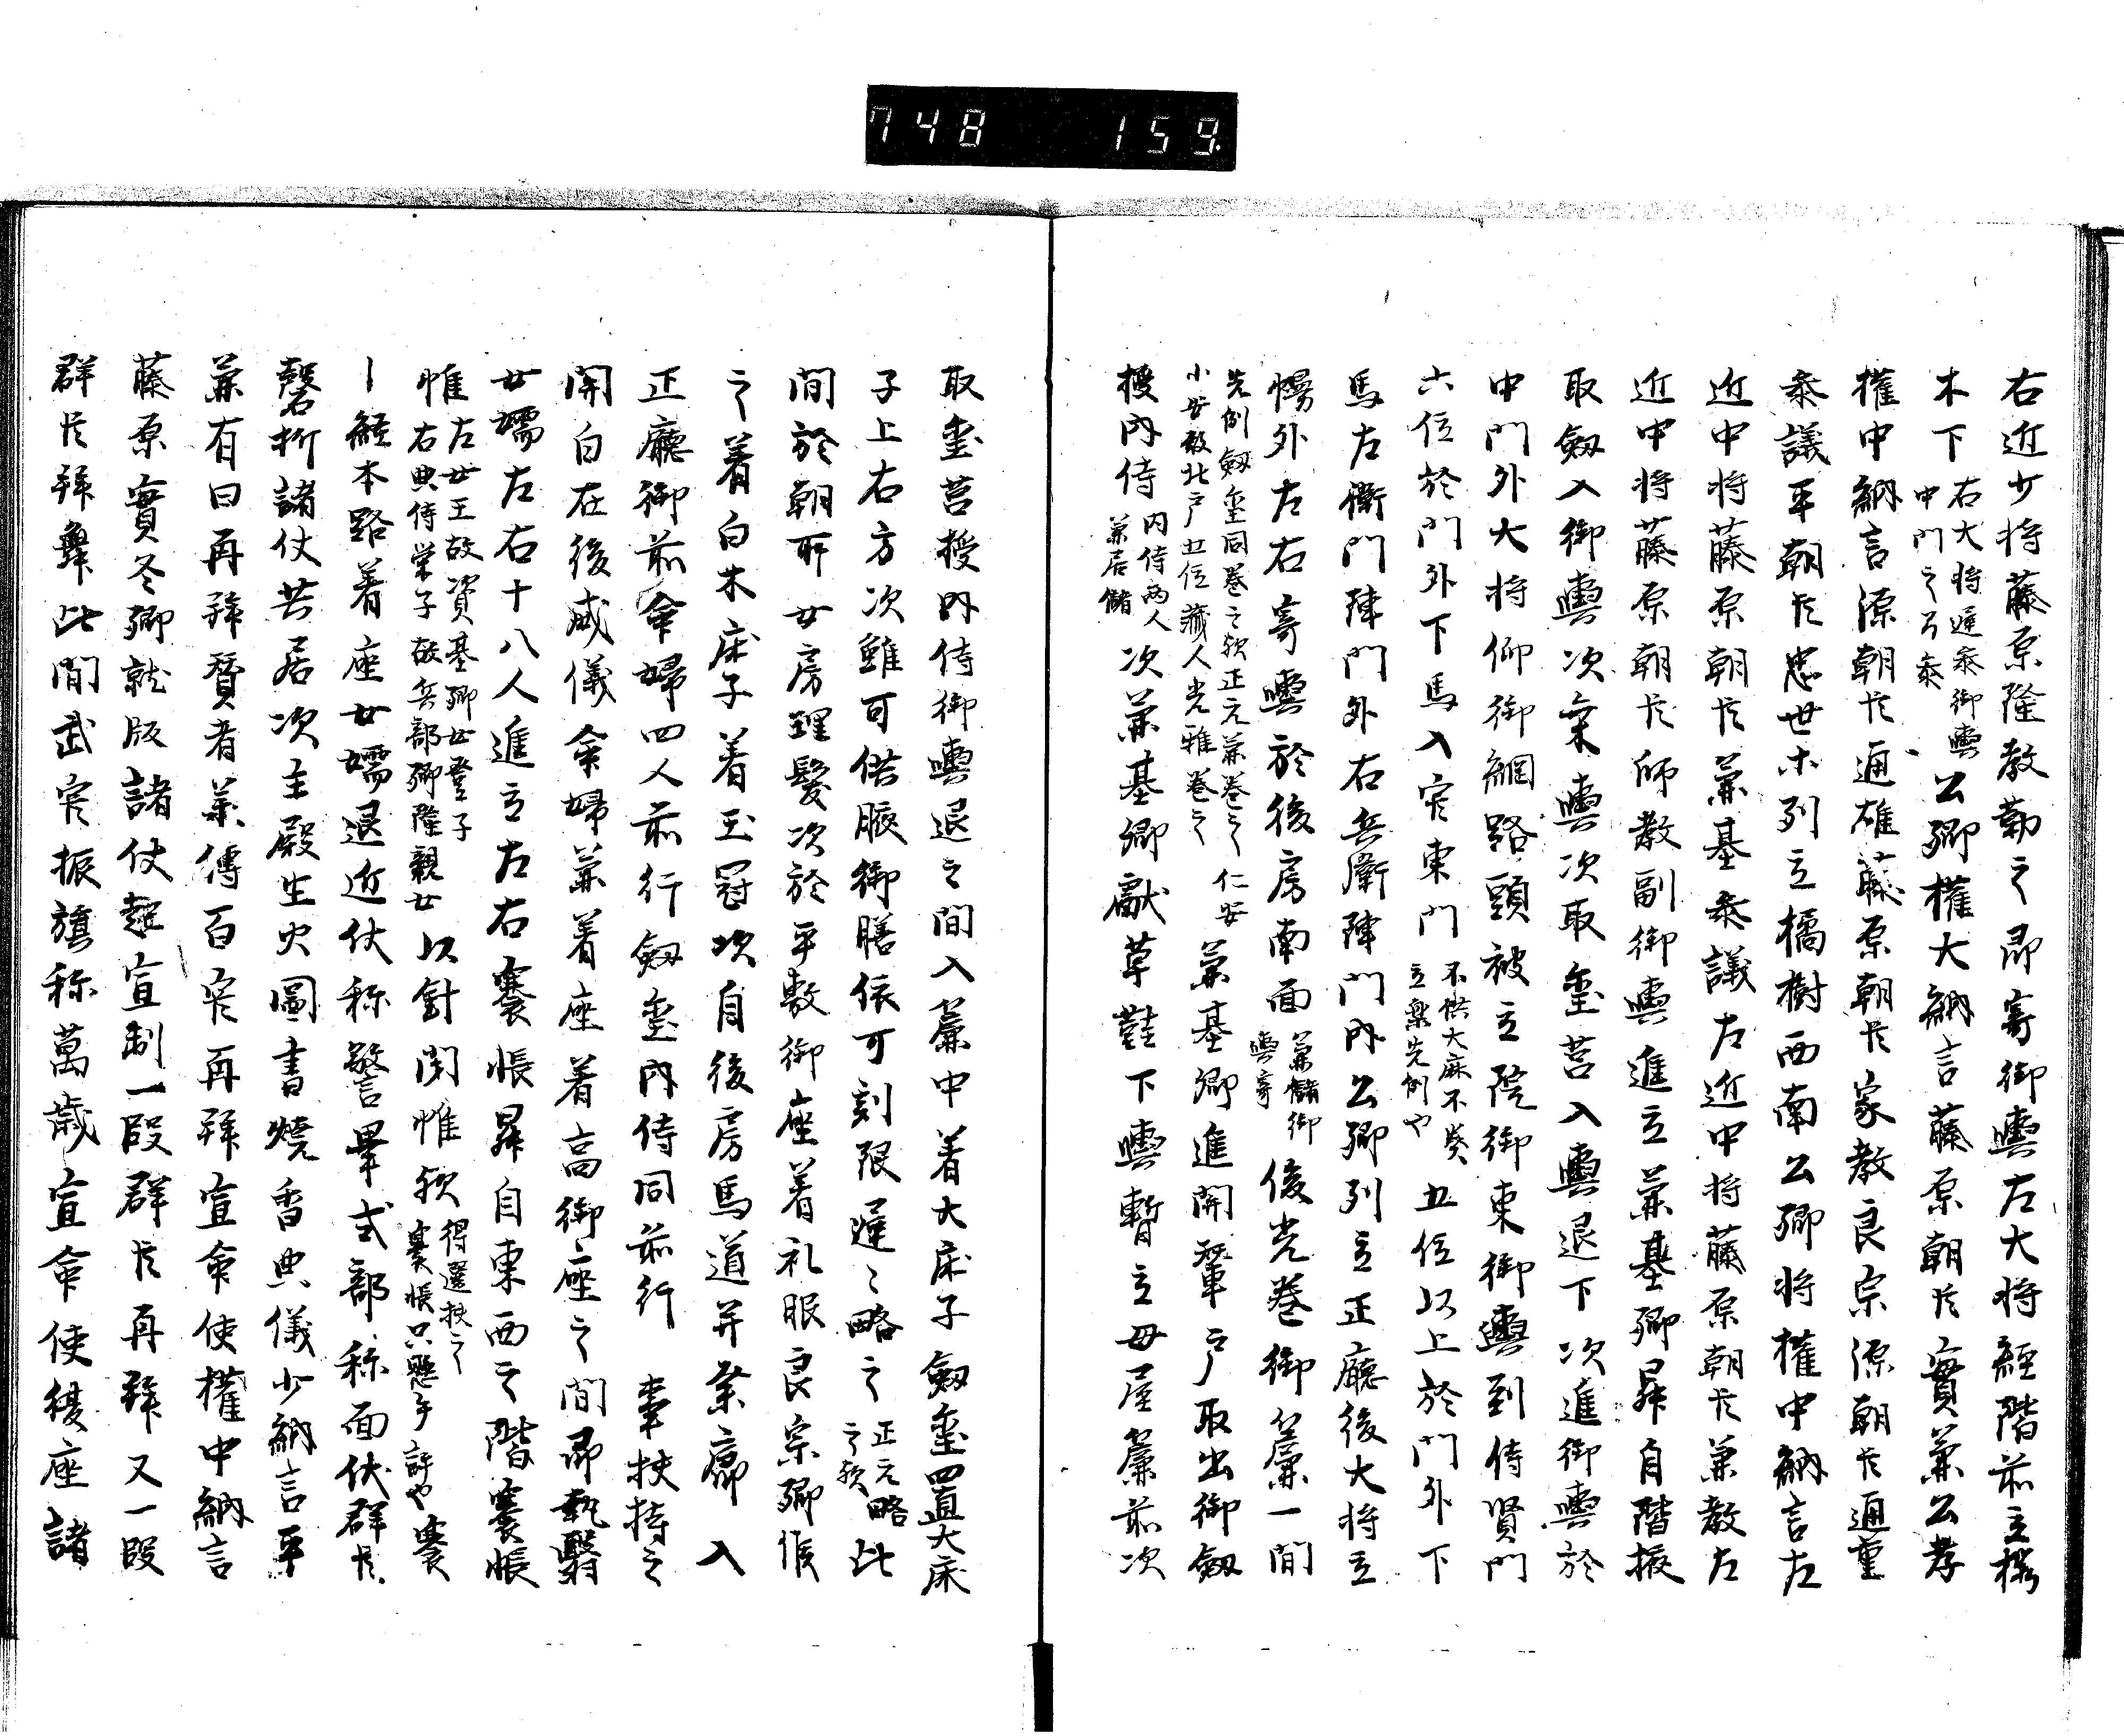 748 159
右近少将藤原隆教勤之即寄御輿左大将経階前立桜
木下右大将遅参御輿中門之召参公卿権大納言藤原朝臣實兼公孝
権中納言源朝臣通雄藤原朝臣家教良宗源朝臣通重
参議平朝臣忠世等列立橘樹西南公卿将権中納言左
近中将藤原朝臣兼基参議左近中将藤原朝臣兼教左
近中将藤原朝臣師教副御輿進立兼基卿昇自階掖
取劔入御輿次乗輿次取璽筥入輿退下次進御輿於
中門外大将仰御綱路頭被立院御車御輿到待賢門
六位於門外下馬入官東門不供大麻不奏立楽先例也五位以上於門外下
馬左衛門陣門外右兵衛陣門内公卿列立正廳後大将立
幔外左右寄輿於後房南面兼儲御輿寄俊光巻御簾一間
先例劔璽同巻之歟正元兼巻之仁安小安殿北戸五位蔵人光雅巻之兼基卿進開輦戸取出御劔
授内侍内侍両人兼居儲次兼基卿献草鞋下輿暫立母屋簾前次
取璽筥授内侍御輿退之間入簾中着大床子劔璽置大床
子上右方次雖可供腋御膳依可刻限遅々略之正元略之歟此
間於朝所女房理髪次於平敷御座着礼服良宗卿候
之着白木床子着玉冠次自後房馬道并業廊入
正廳御前命婦四人前行劔璽内侍同前行 奉扶持之
関白在後威儀命婦兼着座着高御座之間即執翳
女嬬左右十八人進立左右褰帳昇自東西之階褰帳
帷左女王故資基卿女登子右典侍栄子故兵部卿隆親女以針閇帷歟得選扶之褰帳只懸手許也褰
〻経本路着座女嬬退近仗称警畢式部称面伏群臣
磬折諸仗共居次主殿生火圖書焼香典儀少納言平
兼有曰再拝賛者兼傳百官再拝宣命使権中納言
藤原實冬卿就版諸仗起宣制一段群臣再拝又一段
群臣拝舞此間武官振旗称萬歳宣命使復座諸